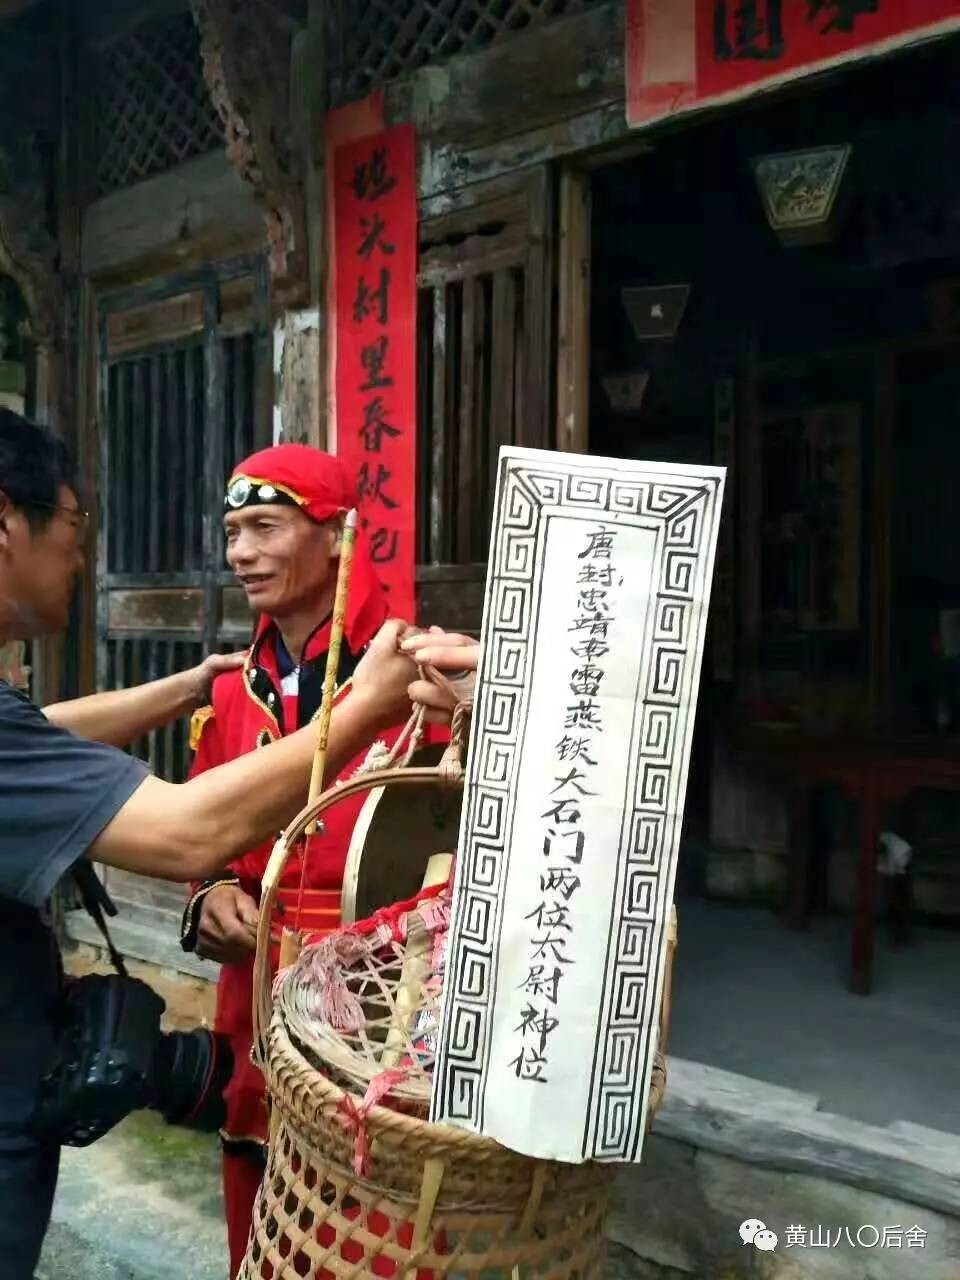 头村里春秋记
唐封忠靖南雷燕铁大石门两位太尉神位
黄山八〇后舍